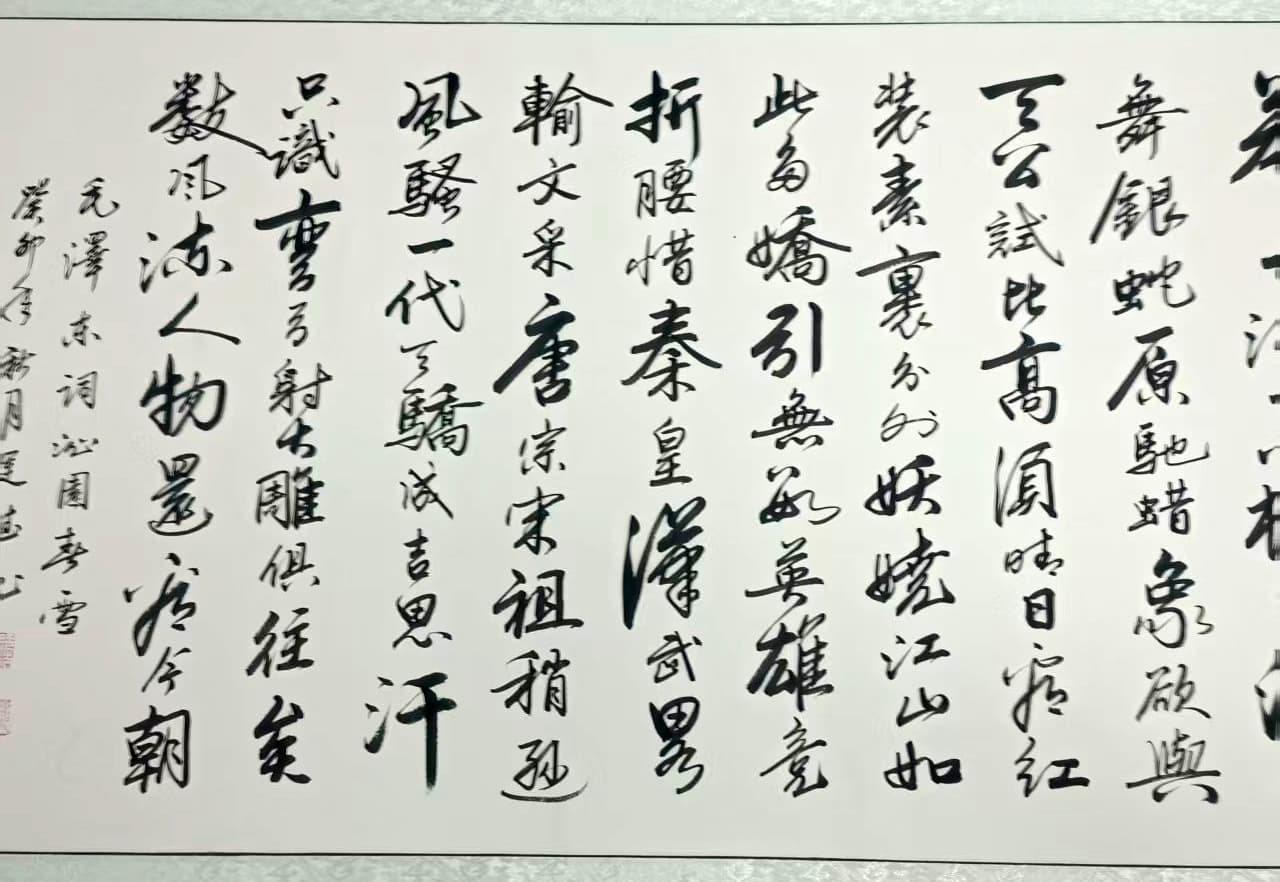 舞銀蛇原馳蜡象欲與
天公試比高須晴日看紅
装素裹分外妖嬈江山如
此多嬌引無數英雄竞
折腰惜秦皇漢武畧
輸文采唐宗宋祖稍遜
風騷一代天驕成吉思汗
只識彎弓射大雕俱往矣
數風流人物還看今朝
毛澤东詞沁園春雪
癸卯年秋月